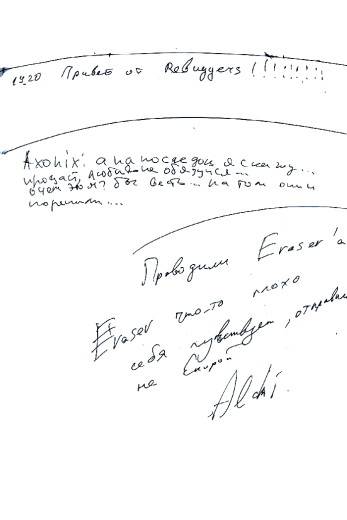 19.20 Привет от Rebuggers!!!!!!!!!
Axonix: а на последок я скажу...
прощай, любить не обязуйся...
о чём это я? бы весть... на том они и
порешили...
Проводили Eraser'а
Eraser что-то плохо
себя чувствует, отправили
на скорой
Alchi.